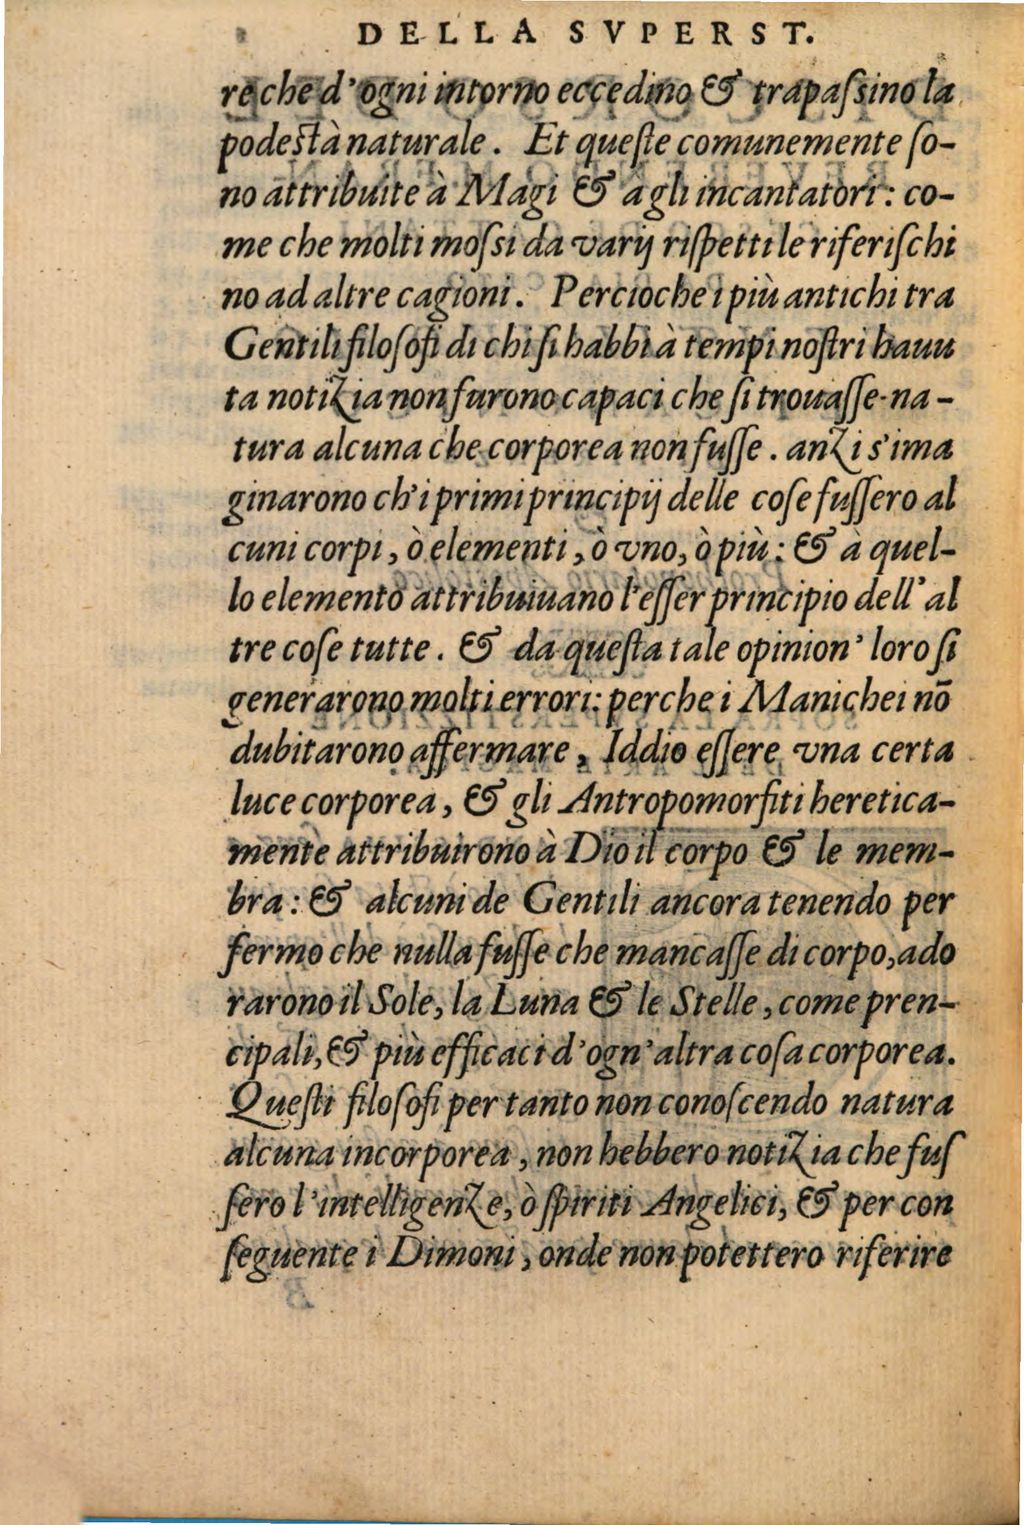 DELLA SVPERST.
re che d'ogni intorno eccedino & trapaſsino la
podeſtà naturale. Et queſte comunemente ſo-
no attribuite à Magi & a gli incantatori: co-
me che molti moſsi da varij riſpetti le riferiſchi
no ad altre cagioni. Percioche i più antichi tra
Gentili filoſofi di chi ſi habbi à tempi noſtri hauu
ta notizia non furono capaci che ſi trouaſſe na-
tura alcuna che corporea non fuſſe. anzi s'ima
ginarono ch'i primi principij delle coſe fuſſero al
cuni corpi, ò elementi, ò vno, ò più: & a quel-
lo elemento attribuiuano l'eſſer principio dell'al
tre coſe tutte. & da queſta tale opinion' loro ſi
generarono molti errori: perche i Manichei nō
dubitarono affermare, Iddio eſſere vna certa
luce corporea, & gli Antropomorfiti heretica-
mente attribuirono à Dio il corpo & le mem-
bra: & alcuni de Gentili ancora tenendo per
fermo che nulla fuſſe che mancaſſe di corpo, ado
rarono il Sole, la Luna & le Stelle, come pren-
cipali, & più efficaci d'ogn'altra coſa corporea.
Queſti filoſofi per tanto non conoſcendo natura
alcuna incorporea, non hebbero notizia che fuſ
ſero l'intelligenze, ò ſpiriti Angelici, & per con
ſeguente i Dimoni, onde non potettero riferire